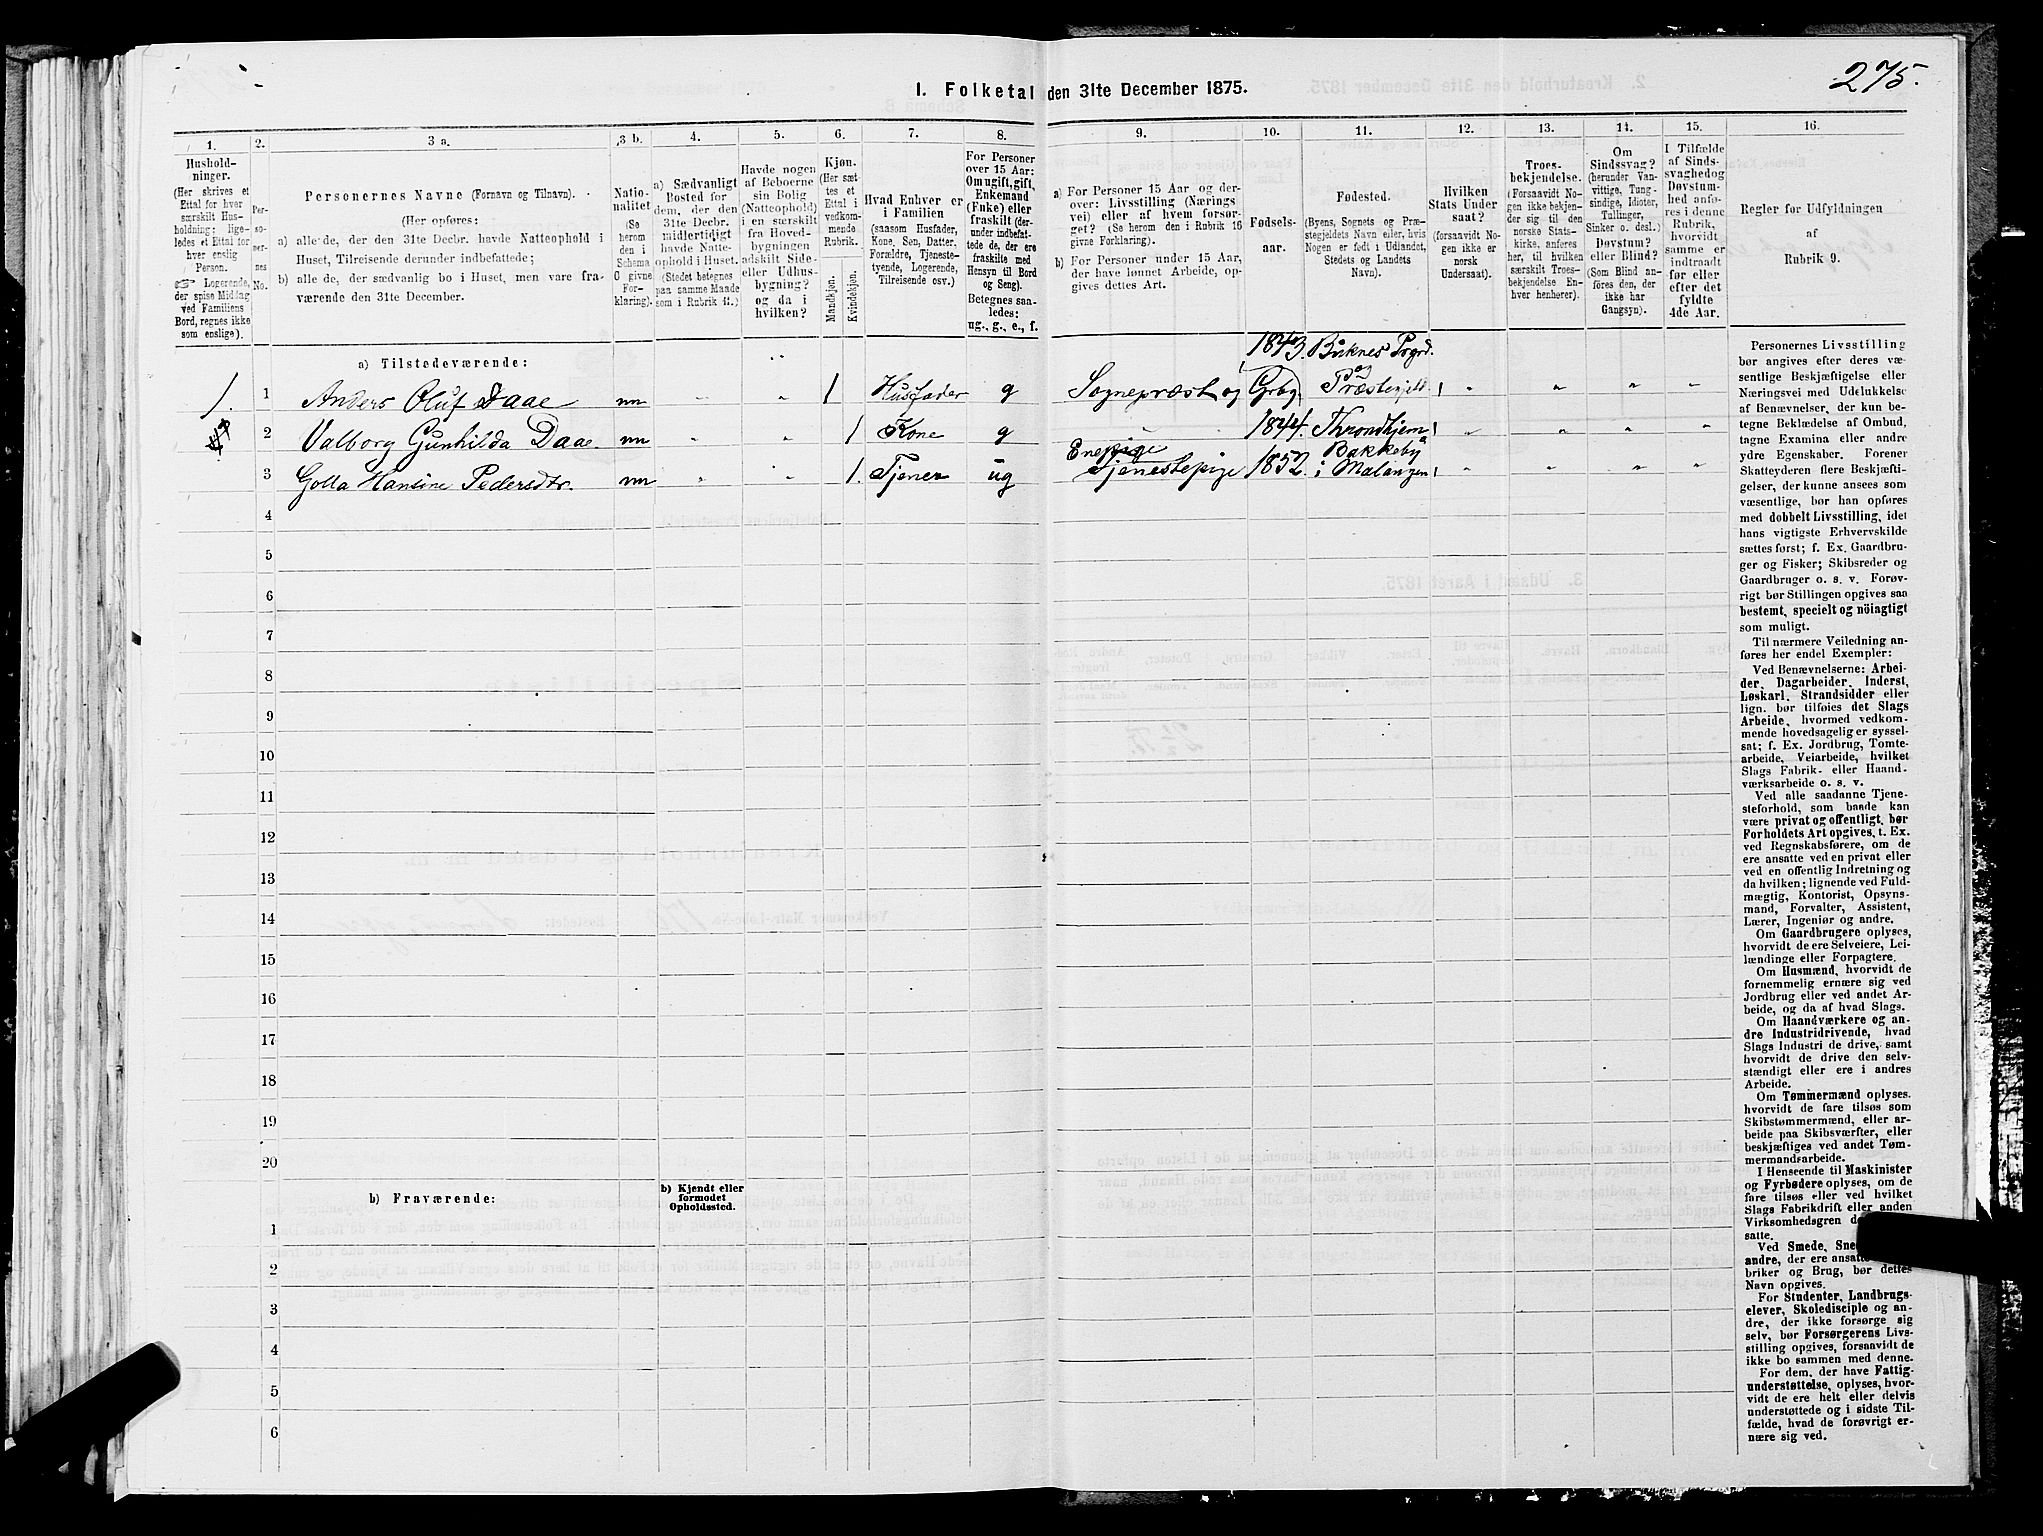 275.
I. Folketal den 31te December 1875.
1. 2. 3 a. 3 b. 4. 5. 6. 7. 8. 9. 10. 11. 12. 13. 14. 15. 16.
Husholdninger.
(Her skrives et
Ettal for hver
særskilt Husholdning;
ligeledes et Ettal for
hver enslig
Person.
☞ Logerende,
der spise Middag
ved Familiens
Bord, regnes ikke
som enslige).
Personernes No.
Personernes Navne (Fornavn og Tilnavn).
(Her opføres:
a) alle de, der den 31te Decbr. havde Natteophold i
Huset, Tilreisende derunder indbefattede;
b) alle de, der sædvanlig bo i Huset, men vare fraværende
den 31te December.
Nationalitet
(Se
herom
den i
Schema
G givne
Forklaring).
a) Sædvanligt
Bosted for
dem, der den
31te Decbr.
midlertidigt
havde Natteophold
i Huset.
(Stedet betegnes
paa samme Maade
som i Rubrik 11.)
Havde nogen
af Beboerne
sin Bolig
(Natteophold)
i en særskilt
fra Hovedbygningen
adskilt Side-
eller Udhusbygning?
og da i
hvilken?
Kjøn.
(Her sættes
et
Ettal i
vedkommende
Rubrik.
Mandkjøn.
Kvindekjøn.
Hvad Enhver er
i Familien
(saasom Husfader,
Kone, Søn, Datter,
Forældre, Tjenestetyende,
Logerende,
Tilreisende osv.)
For Personer
over 15 Aar:
Om ugift, gift,
Enkemand
(Enke) eller
fraskilt (derunder
indbefattede
de, der ere
fraskilte med
Hensyn til Bord
og Seng).
Betegnes saaledes:
ug., g., e., f.
a) For Personer 15 Aar og derover:
Livsstilling (Næringsvei)
eller af hvem forsørget?
(Se herom den i Rubrik 16
givne Forklaring).
b) For Personer under 15 Aar,
der have lønnet Arbeide, opgives
dettes Art.
Fødselsaar.
Fødested.
(Byens, Sognets og Præstegjeldets
Navn eller, hvis
Nogen er født i Udlandet,
Stedets og Landets
Navn).
Hvilken
Stats Undersaat?
(forsaavidt Nogen
ikke er
norsk
Undersaat).
Troesbekjendelse.
(Forsaavidt Nogen
ikke bekjender
sig til den
norske Statskirke,
anføres
her, til hvilken
særskilt Troesbekjendelse
Enhver
henhører).
Om
Sindssvag?
(herunder Vanvittige,
Tungsindige,
Idioter,
Tallinger,
Sinker o. desl.)
Døvstum?
eller Blind?
(Som Blind anføres
den, der
ikke har
Gangsyn).
I Tilfælde
af Sindssvaghed
og
Døvstumhed
anføres
i denne
Rubrik,
hvorvidt
samme er
indtraadt
før eller
efter det
fyldte
4de Aar.
Regler før Udfyldningen
af
Rubrik 9.
a) Tilstedeværende:
1843. Buknes Prgrd.
1. 1 Anders Oluf Daae nn " 1 Husfader g Sognepræst og Grbg. og Præstegjeld " " " "
2 Valborg Gunhilda Daae nn " " 1 Kone g " 1844. Throndhjem " " " "
Enepige Bakkeby
3 Golla Hansine Pedersdtr. nn " " 1. Tjener ug Tjenestepige 1852. i Malangen " " " "
4
5
6
7
8
9
10
11
12
13
14
15
16
17
18
19
20
b) Fraværende:
b) Kjendt eller
formodet
Opholdssted.
1
2
3
4
5
6
Personernes Livsstilling
bør angives efter deres væsentlige
Beskjæftigelse eller
Næringsvei med Udelukkelse
af Benævnelser, der kun betegne
Beklædelse af Ombud,
tagne Examina eller andre
ydre Egenskaber. Forener
Skatteyderen flere Beskjæftigelser,
der kunne ansees som
væsentlige, bør han opføres
med dobbelt Livsstilling, idet
hans vigtigste Erhvervskilde
sættes først; f. Ex. Gaardbruger
og Fisker; Skibsreder og
Gaardbruger o. s. v. Forøvrigt
bør Stillingen opgives saa
bestemt, specielt og nöiagtigt
som muligt.
Til nærmere Veiledning anføres
her endel Exempler:
Ved Benævnelserne: Arbeider,
Dagarbeider, Inderst,
Løskarl, Strandsidder eller
lign. bør tilføies det Slags
Arbeide, hvormed vedkommende
hovedsagelig er sysselsat;
f. Ex. Jordbrug, Tomtearbeide,
Veiarbeide, hvilket
Slags Fabrik- eller Haandværksarbeide
o. s. v.
Ved alle saadanne Tjenesteforhold,
som baade kan
være privat og offentligt, bør
Forholdets Art opgives, t. Ex.
ved Regnskabsførere, om de
ere ansatte ved en privat eller
ved en offentlig Indretning og
da hvilken; lignende ved Fuldmægtig,
Kontorist, Opsynsmand,
Forvalter, Assistent,
Lærer, Ingeniør og andre.
Om Gaardbrugere oplyses,
hvorvidt de ere Selveiere, Leilændinge
eller Forpagtere.
Om Husmænd, hvorvidt de
fornemmelig ernære sig ved
Jordbrug eller ved andet Arbeide,
og da af hvad Slags.
Om Haandværkere og andre
Industridrivende, hvad
Slags Industri de drive, samt
hvorvidt de drive den selvstændigt
eller ere i andres
Arbeide.
Om Tømmermænd oplyses,
hvorvidt de fare tilsøs som
Skibstømmermænd, eller arbeide
paa Skibsværfter, eller
beskjæftiges ved andet Tømmermandsarbeide.
I Henseende til Maskinister
og Fyrbødere oplyses, om de
fare tilsøs eller ved hvilket
Slags Fabrikdrift eller anden
Virksomhedsgren de
satte.
Ved Smede, Sne
andre, der ere ansatte
briker og Brug, bør dettes
Navn opgives.
For Studenter, Landbrugselever,
Skoledisciple og andre,
der ikke forsørge sig
selv, bør Forsørgerens Livsstilling
opgives, forsaavidt de
ikke bo sammen med denne.
For dem, der have Fattigunderstøttelse,
oplyses, hvorvidt
de ere helt eller delvis
understøttede og i sidste Tilfælde,
hvad de forøvrigt ernære
sig ved.